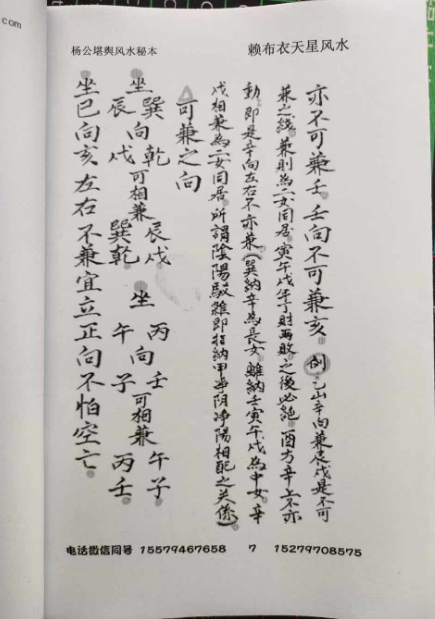 com
杨公堪舆风水秘本
赖布衣天星风水
亦不可兼壬。壬向不可兼亥。例乙山辛向兼辰戌是不可
兼之线。兼则為二女同居。寅午戌年丁財两敗之後必絕。酉方辛上不亦
動。即是辛向左右不亦兼(巽納辛為長女。離納壬寅午戌為中女。辛
戌相兼為二女同居。所謂陰陽駁雜即指納甲净阴净陽相配之关係)
可兼之向
坐巽向乾可相兼辰戌 坐丙向壬可相兼午子
辰戌 巽乾 午子 丙壬
坐巳向亥左右不兼宜立正向不怕空亡。
电话微信同号 15579467658 7 15279708575